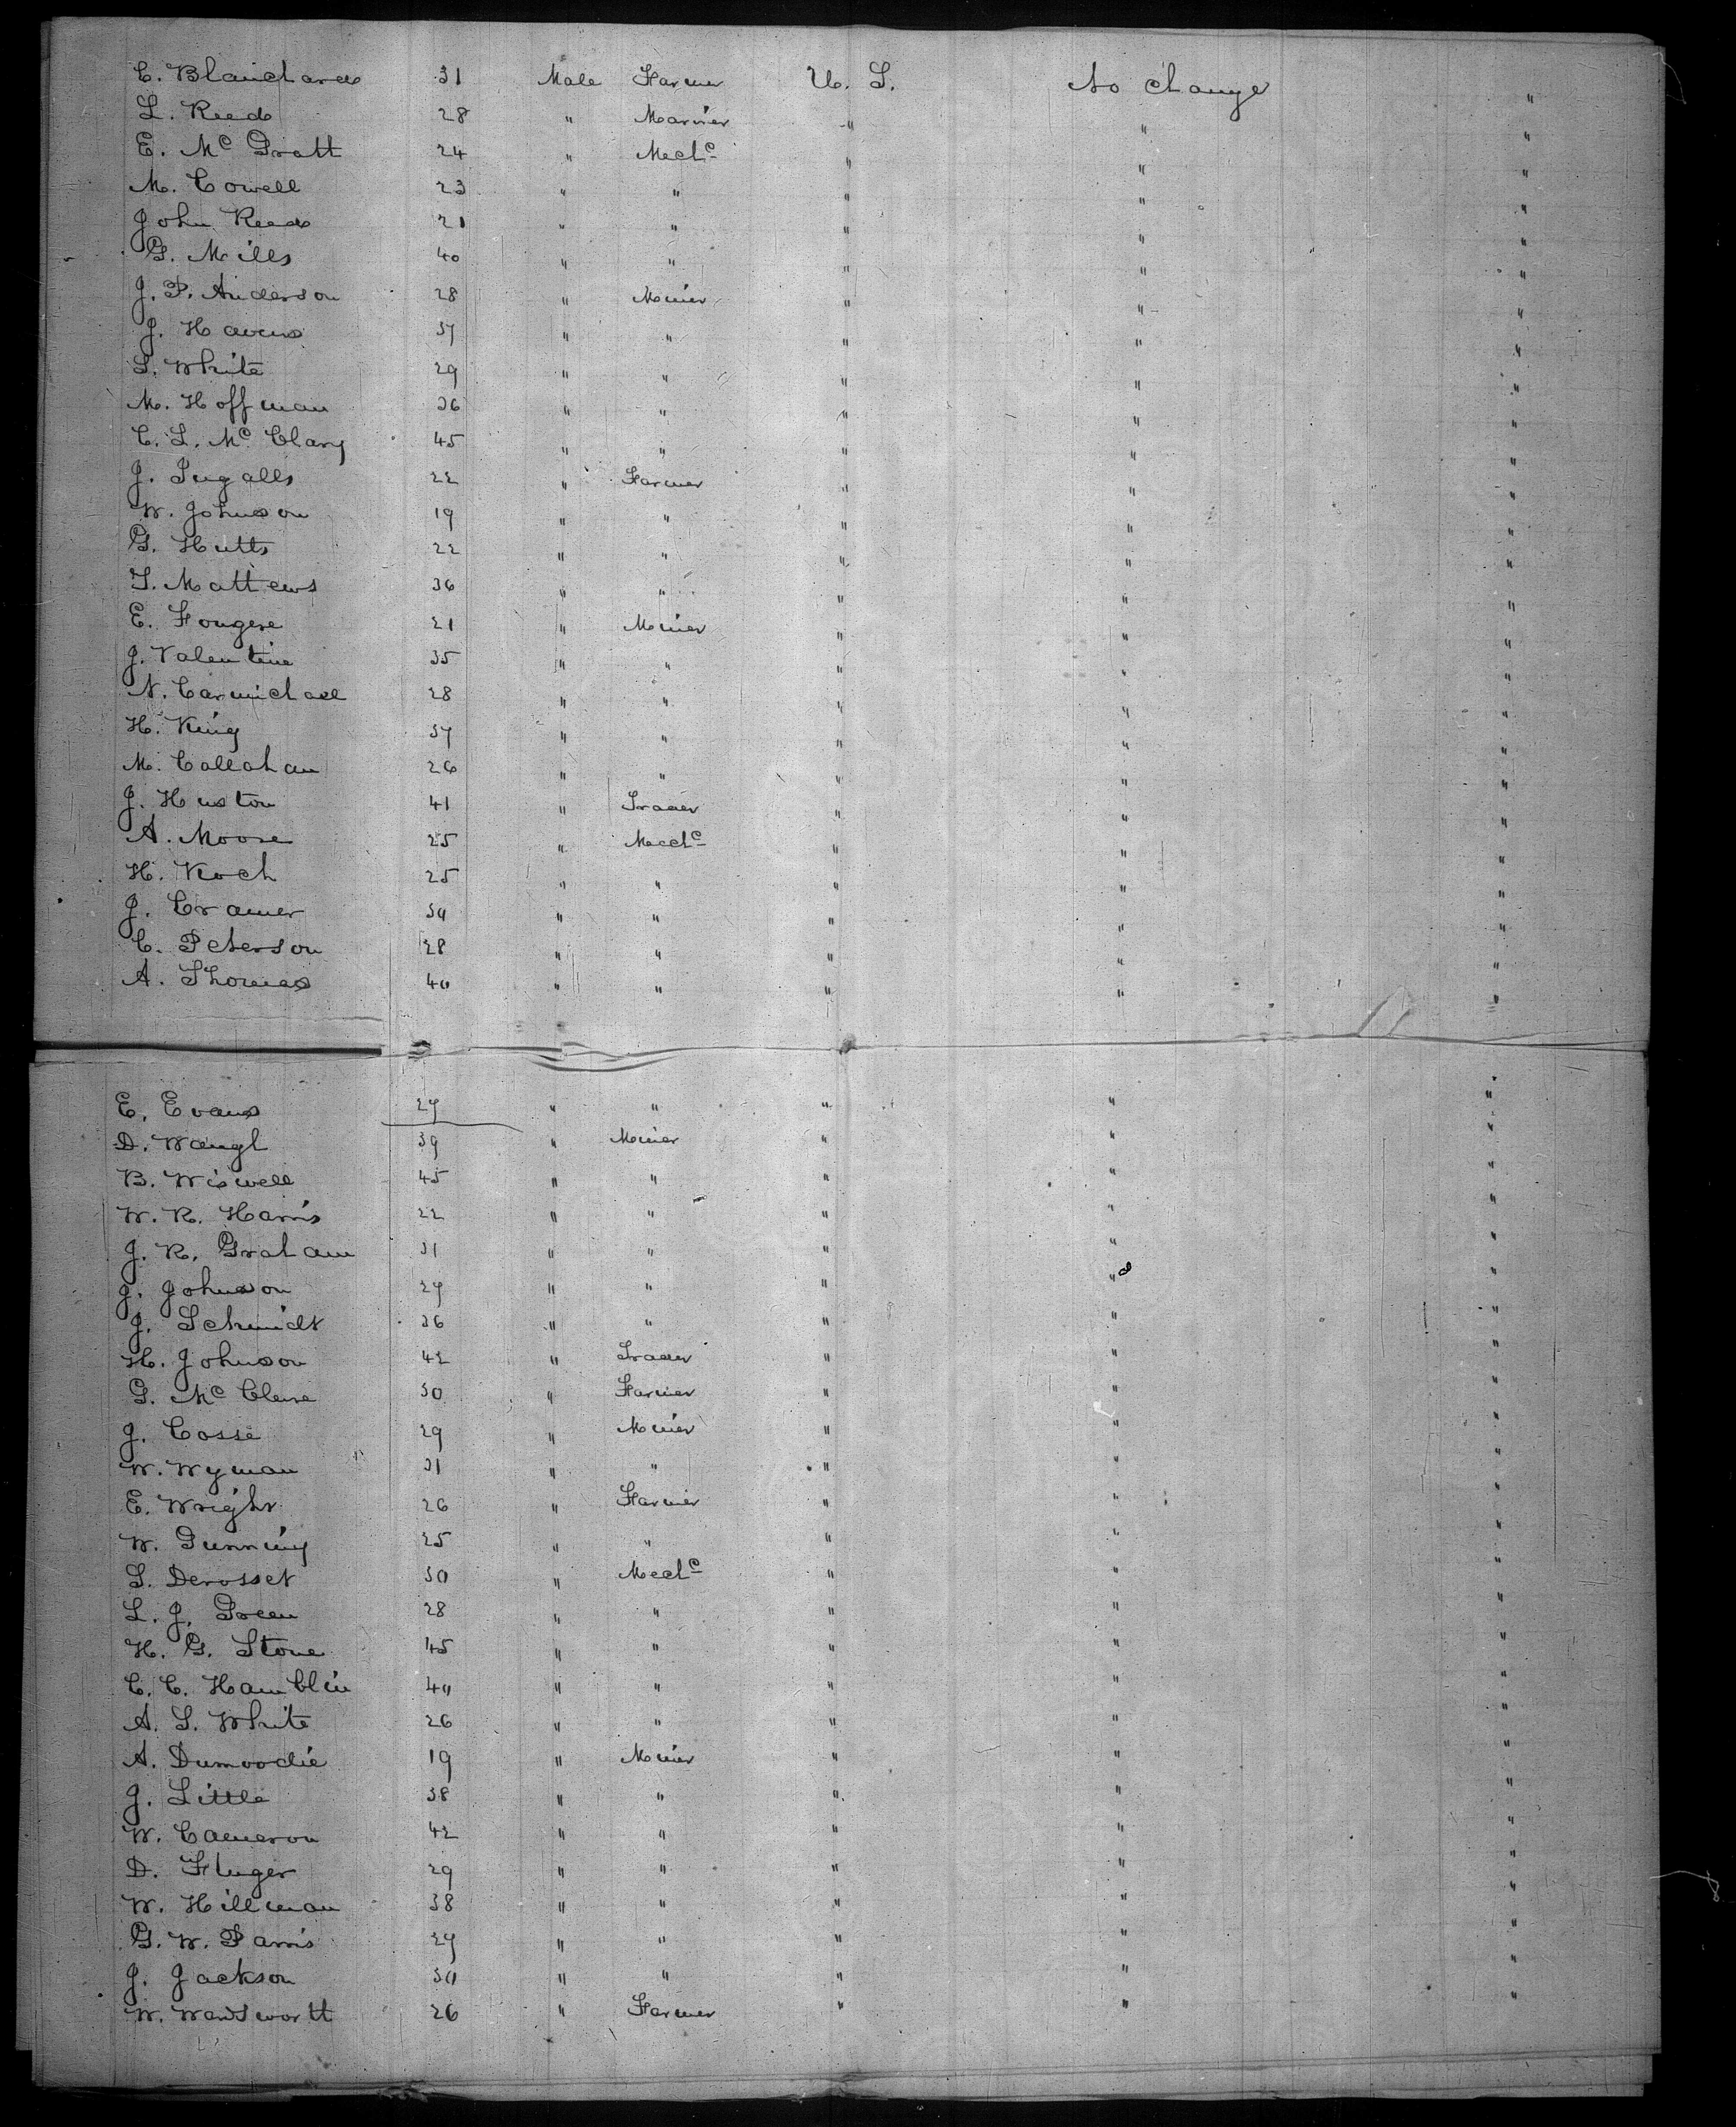 C. Blanchard 31 Male Farmer U. S. No change "
L. Reed 28 " Marrier " " "
E. Mc Gratt 24 " Mechc " " "
M. Cowell 23 " " " " "
John Reed 21 " " " " "
G. Mills 40 " " " " "
J. P. Anderson 28 " Minier " " "
J. Havens 37 " " " " "
S. White 29 " " " " "
M. Hoffman 36 " " " " "
C. L. Mc Clary 45 " " " " "
J. Ingalls 22 " Farmer " " "
W. Johnson 19 " " " " "
G. Hutts 22 " " " " "
T. Mathews 36 " " " " "
E. Fougere 21 " Minier " " "
J. Valentine 35 " " " " "
N. Carmichael 28 " " " " "
H. King 37 " " " " "
M. Callahan 26 " " " " "
J. Huston 41 " Trader " " "
A. Moore 25 " Mechc " " "
H. Koch 25 " " " " "
J. Cramer 30 " " " " "
C. Peterson 28 " " " " "
A. Thomas 40 " " " " "
E. Evans 27 " " " " "
D. Waugh 39 " Minier " " "
B. Wiswell 45 " " " " "
W. R. Harris 22 " " " " "
J. R. Graham 31 " " " " "
J. Johnson 27 " " " " "
J. Schmidt 36 " " " " "
H. Johnson 42 " Trader " " "
G. Mc Clure 30 " Farmer " " "
J. Cosse 29 " Minier " " "
W. Wyman 31 " " " " "
E. Wright 26 " Farmer " " "
W. Gunning 25 " " " " "
S. Derosset 30 " Mechc " " "
L. J. Green 28 " " " " "
H. G. Stone 45 " " " " "
C. C. Hamblin 40 " " " " "
A. S. White 26 " " " " "
A. Dumoodie 19 " Minier " " "
J. Little 38 " " " " "
W. Cameron 42 " " " " "
D. Fluger 29 " " " " "
W. Hillman 38 " " " " "
G. W. Parris 27 " " " " "
J. Jackson 30 " " " " "
W. Wandsworth 26 " Farmer " " "